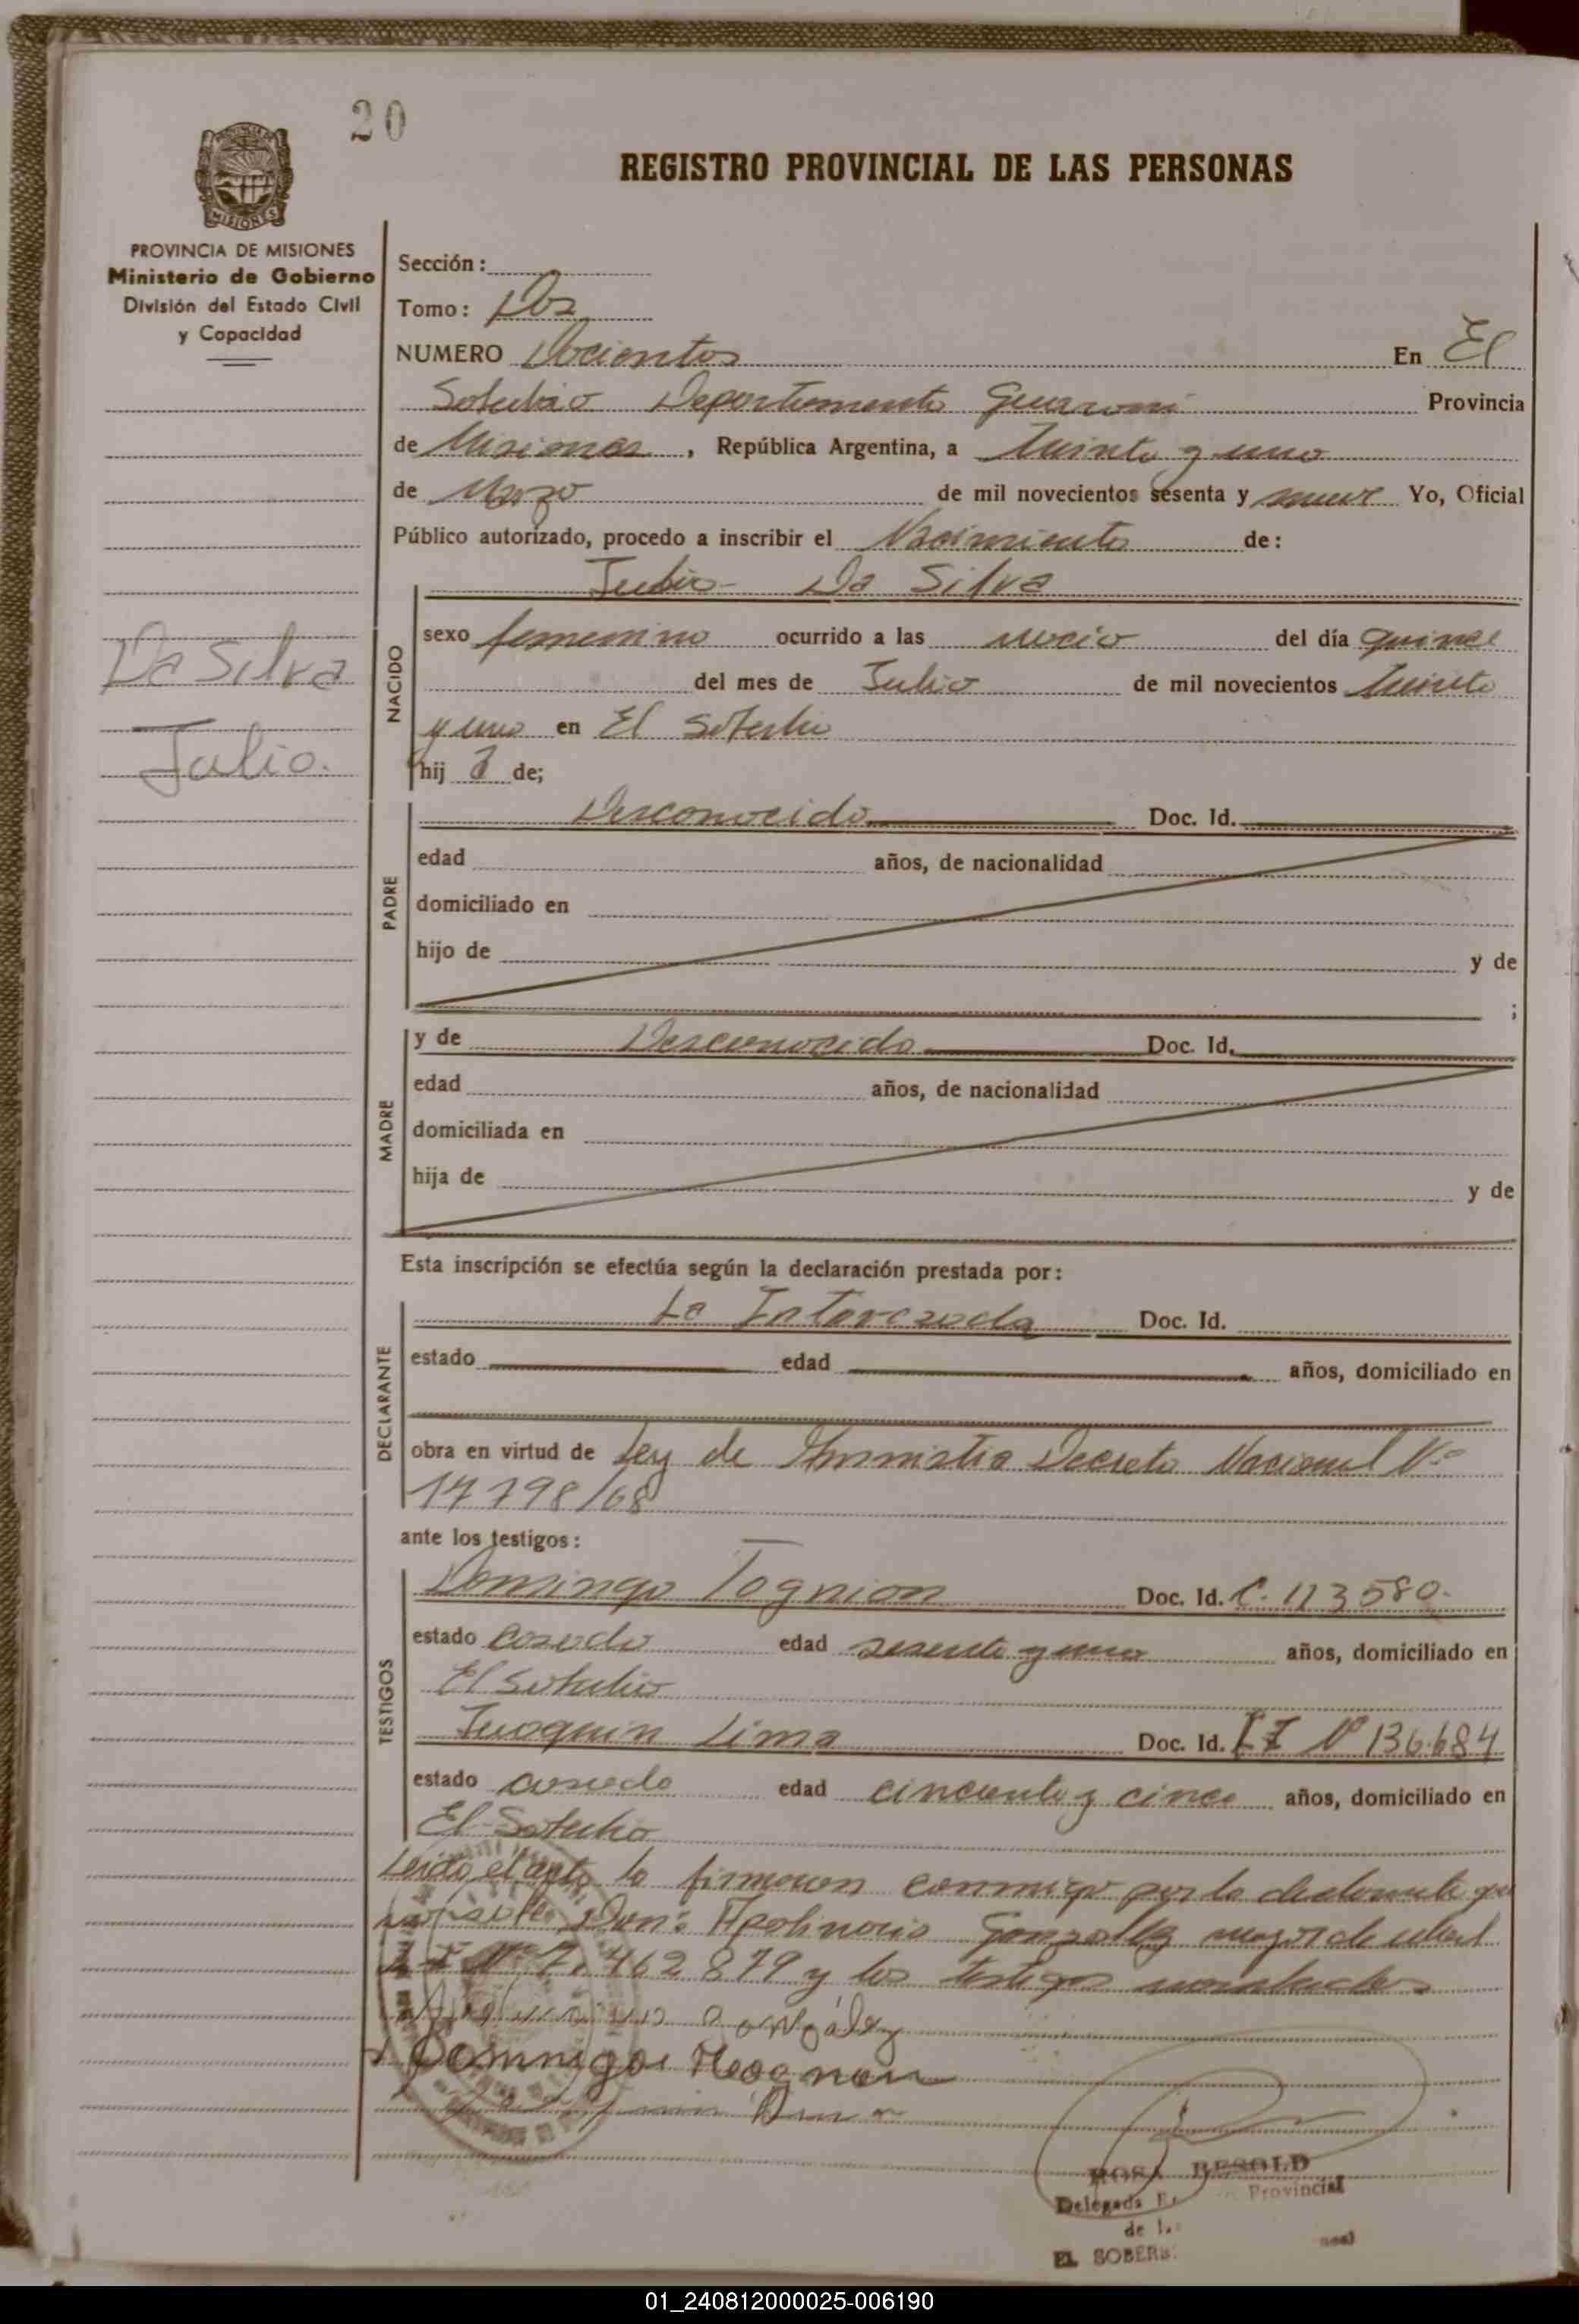 20
REGISTRO PROVINCIAL DE LAS PERSONAS
PROVINCIA DE MISIONES
Ministerio de Gobierno
División del Estado Civil
y Capacidad
Sección:
Tomo: Dos
NUMERO Docientos En El
Soberbio Departamento Guarani Provincia
de Misiones, República Argentina, a Treinta y uno
de Marzo de mil novecientos sesenta y nueve Yo, Oficial
Público autorizado, procedo a inscribir el Nacimiento de:
Julia Da Silva
NACIDO
sexo femenino ocurrido a las del día quince
del mes de Julio de mil novecientos treinta
y uno en El Soberbio
hij a de;
Da Silva
Julia.
PADRE
Desconocido Doc. Id.
edad años, de nacionalidad
domiciliado en
hijo de y de
;
MADRE
y de Desconocido Doc. Id.
edad años, de nacionalidad
domiciliada en
hija de y de
Esta inscripción se efectúa según la declaración prestada por:
DECLARANTE
La Interezada Doc. Id.
estado edad años, domiciliado en
obra en virtud de Ley de Amnistia Decreto Nacional Nº
17798/68
ante los testigos:
TESTIGOS
Domingo Tognion Doc. Id. C. 113580.
estado Casado edad sesenta y uno años, domiciliado en
El Soberbio
Juaquin Lima Doc. Id. L E Nº 136.684
estado casado edad cincuenta y cinco años, domiciliado en
El Soberbio
Leido el acta la firmaron conmigo por la declarante que
Don: Apolinario Gonzalez mayor de edad
Nº 7.462879 y los testigos
González
Domingo
ROSA BESOLD
Delegada Provincial
de l
EL SOBERB
01_240812000025-006190